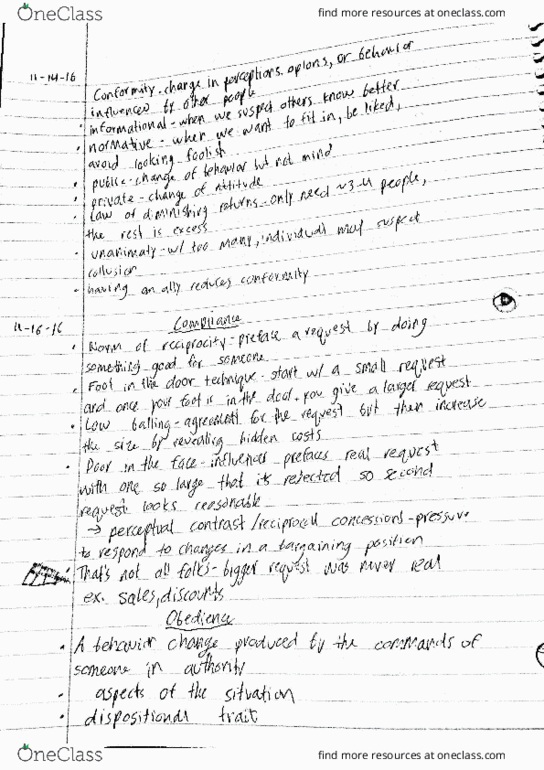 OneClass
find more resources at oneclass.com
11-14-16
Conformity - change in perceptions, opions, or behavior
influenced by other people
• informational - when we suspect others know better
• normative - when we want to fit in, be liked,
avoid looking foolish
• public - change of behavior but not mind
• private - change of attitude
• Law of diminishing returns - only need ~3-4 people,
the rest is excess
• unanimaty - w/ too many, individual may suspect
collusion
• having an ally reduces conformity
11-16-16
Compliance
• Norm of reciprocity - preface a request by doing
something good for someone
• Foot in the door technique - start w/ a small request
and once your foot is in the door, you give a larger request
• Low balling - agreement for the request but then increase
the size by revealing hidden costs
• Door in the face - influencer prefaces real request
with one so large that it's rejected so second
request looks reasonable
→ perceptual contrast / reciprocal concessions - pressure
to respond to changes in a bargaining position
That's not all folks - bigger request was never real
ex. sales, discounts
Obedience
• A behavior change produced by the commands of
someone in authority
• aspects of the situation
• dispositional trait
OneClass
find more resources at oneclass.com